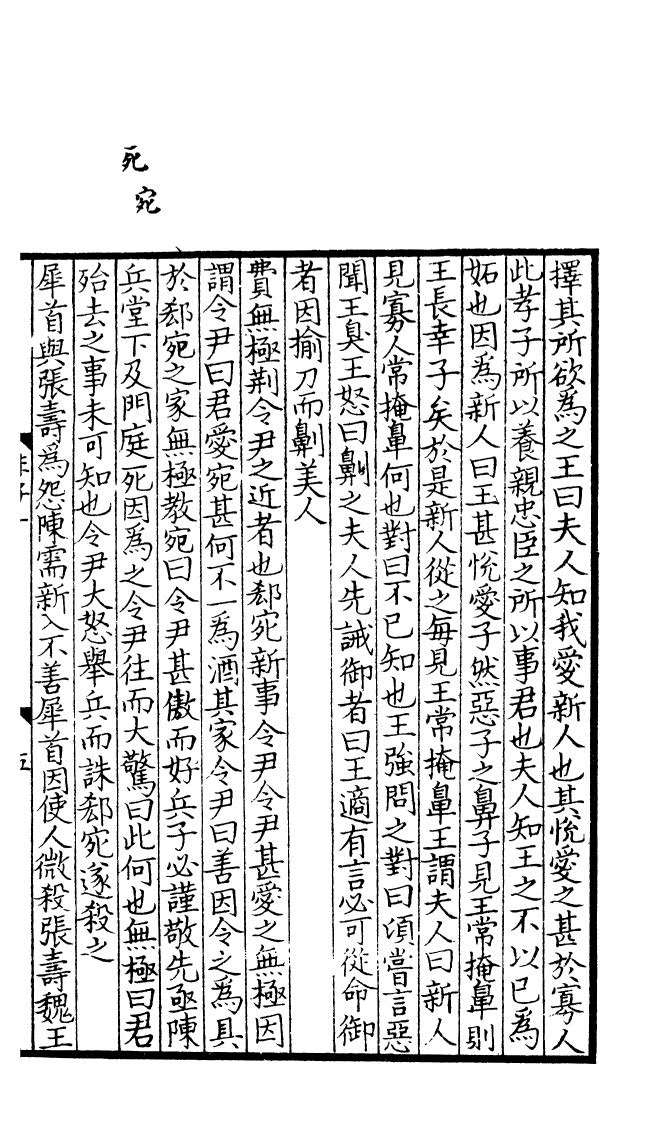 死
宛
擇其所欲為之王曰夫人知我愛新人也其恱愛之甚於寡人
此孝子所以養親忠臣之所以事君也夫人知王之不以已為
妬也因為新人曰王甚恱愛子然惡子之鼻子見王常掩鼻則
王長幸子矣於是新人從之每見王常掩鼻王謂夫人曰新人
見寡人常掩鼻何也對曰不已知也王強問之對曰頃嘗言惡
聞王臭王怒曰劓之夫人先誡御者曰王適有言必可從命御
者因揄刀而劓美人
費無極荆令尹之近者也郄宛新事令尹令尹甚愛之無極因
謂令尹曰君愛宛甚何不一為酒其家令尹曰善因令之為具
於郄宛之家無極教宛曰令尹甚傲而好兵子必謹敬先亟陳
兵堂下及門庭死因為之令尹往而大驚曰此何也無極曰君
殆去之事未可知也令尹大怒舉兵而誅郄宛遂殺之
犀首與張壽為怨陳需新入不善犀首因使人微殺張壽魏王